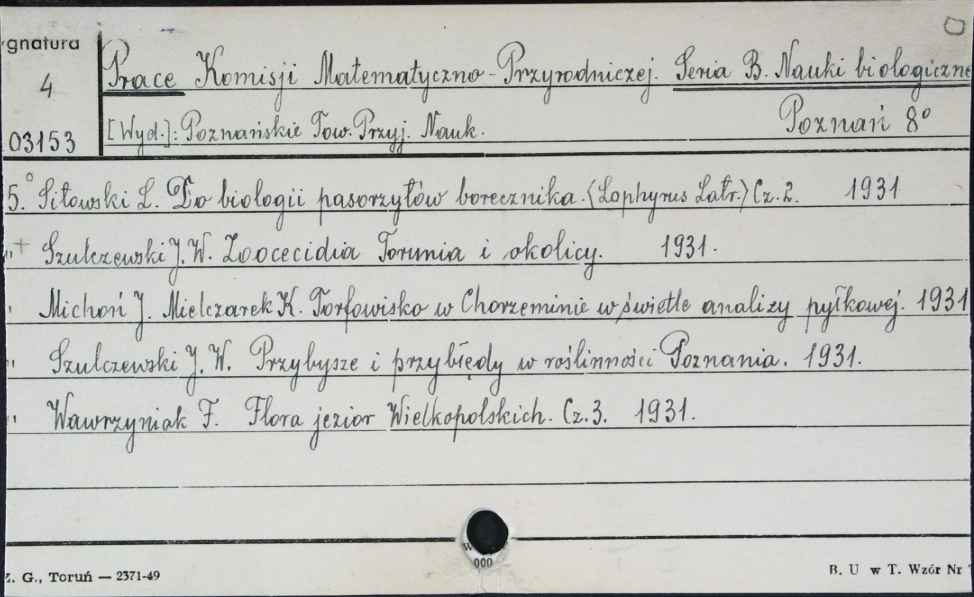 gnatura
4
03153
Prace Komisji Matematyczno-Przyrodniczej. Seria B. Nauki biologiczne
[Wyd.]: Poznańskie Tow. Przyj. Nauk. Poznań 8°
5.° Sitowski L. Do biologii pasorzytów borecznika. (Lophyrus Latr.) Cz. 2. 1931
" + Szulczewski J. W. Zoocecidia Torunia i okolicy. 1931.
" Michoń J. Mielczarek K. Torfowisko w Chorzeminie w świetle analizy pyłkowej. 1931
" Szulczewski J. W. Przybysze i przybłędy w roślinności Poznania. 1931.
" Wawrzyniak F. Flora jezior Wielkopolskich. Cz. 3. 1931.
000
Z. G., Toruń — 2371-49
B. U w T. Wzór Nr